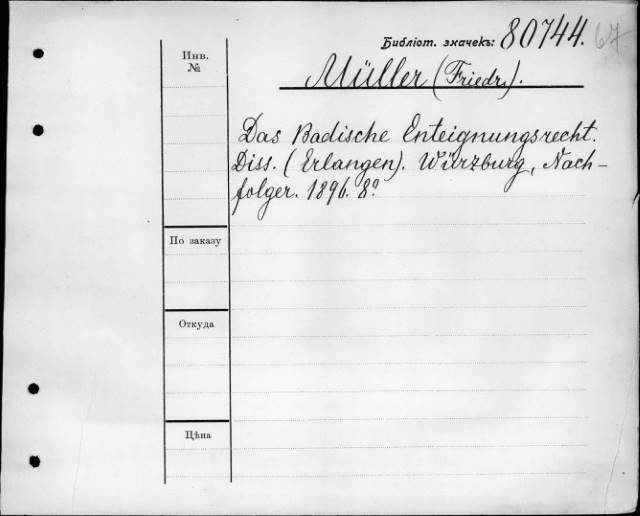 Библіот. значекъ: 80744. 67
Инв.
№
Müller (Friedr.).
Das Badische Enteignungsrecht.
Diss. (Erlangen). Würzburg, Nach-
folger. 1896. 8º
По заказу
Откуда
Цѣна